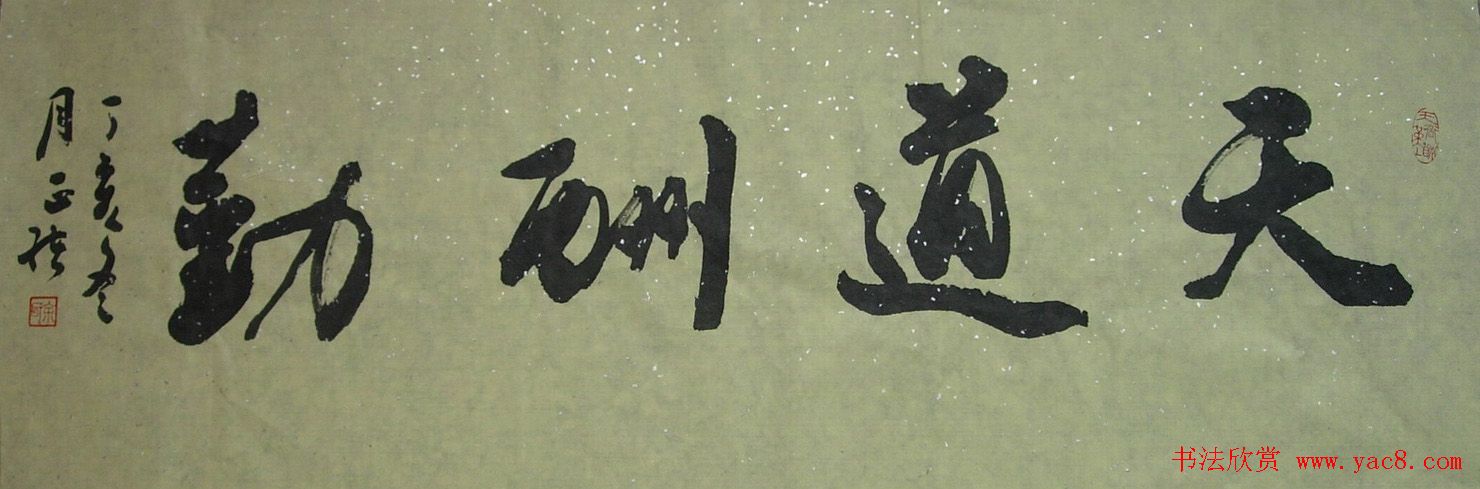 天道酬勤
丁亥冬
月正
书法欣赏 www.yac8.com